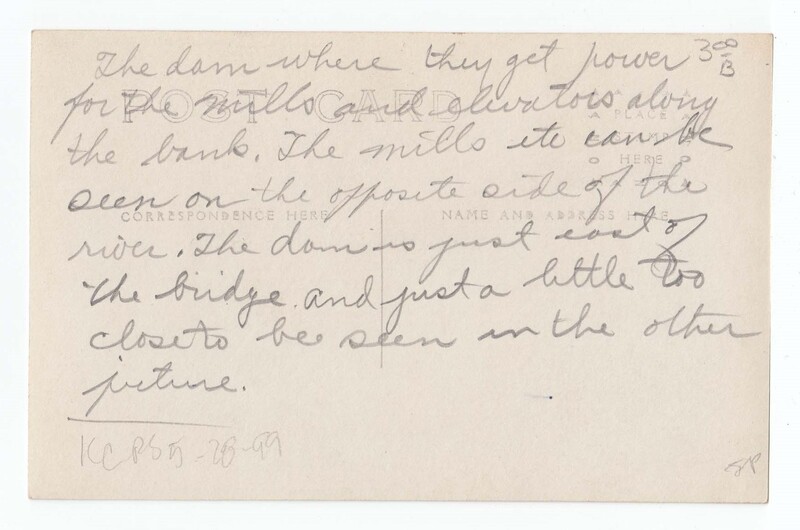 The dam where they get power
for the mills and elevators along
the bank. The mills etc can be
seen on the opposite side of the
river. The dam is just east of
the bridge and just a little too
close to be seen in the other
picture.
3 00
B
POST CARD
PLACE
STAMP
HERE
CORRESPONDENCE HERE
NAME AND ADDRESS HERE
KCPS 5-28-99